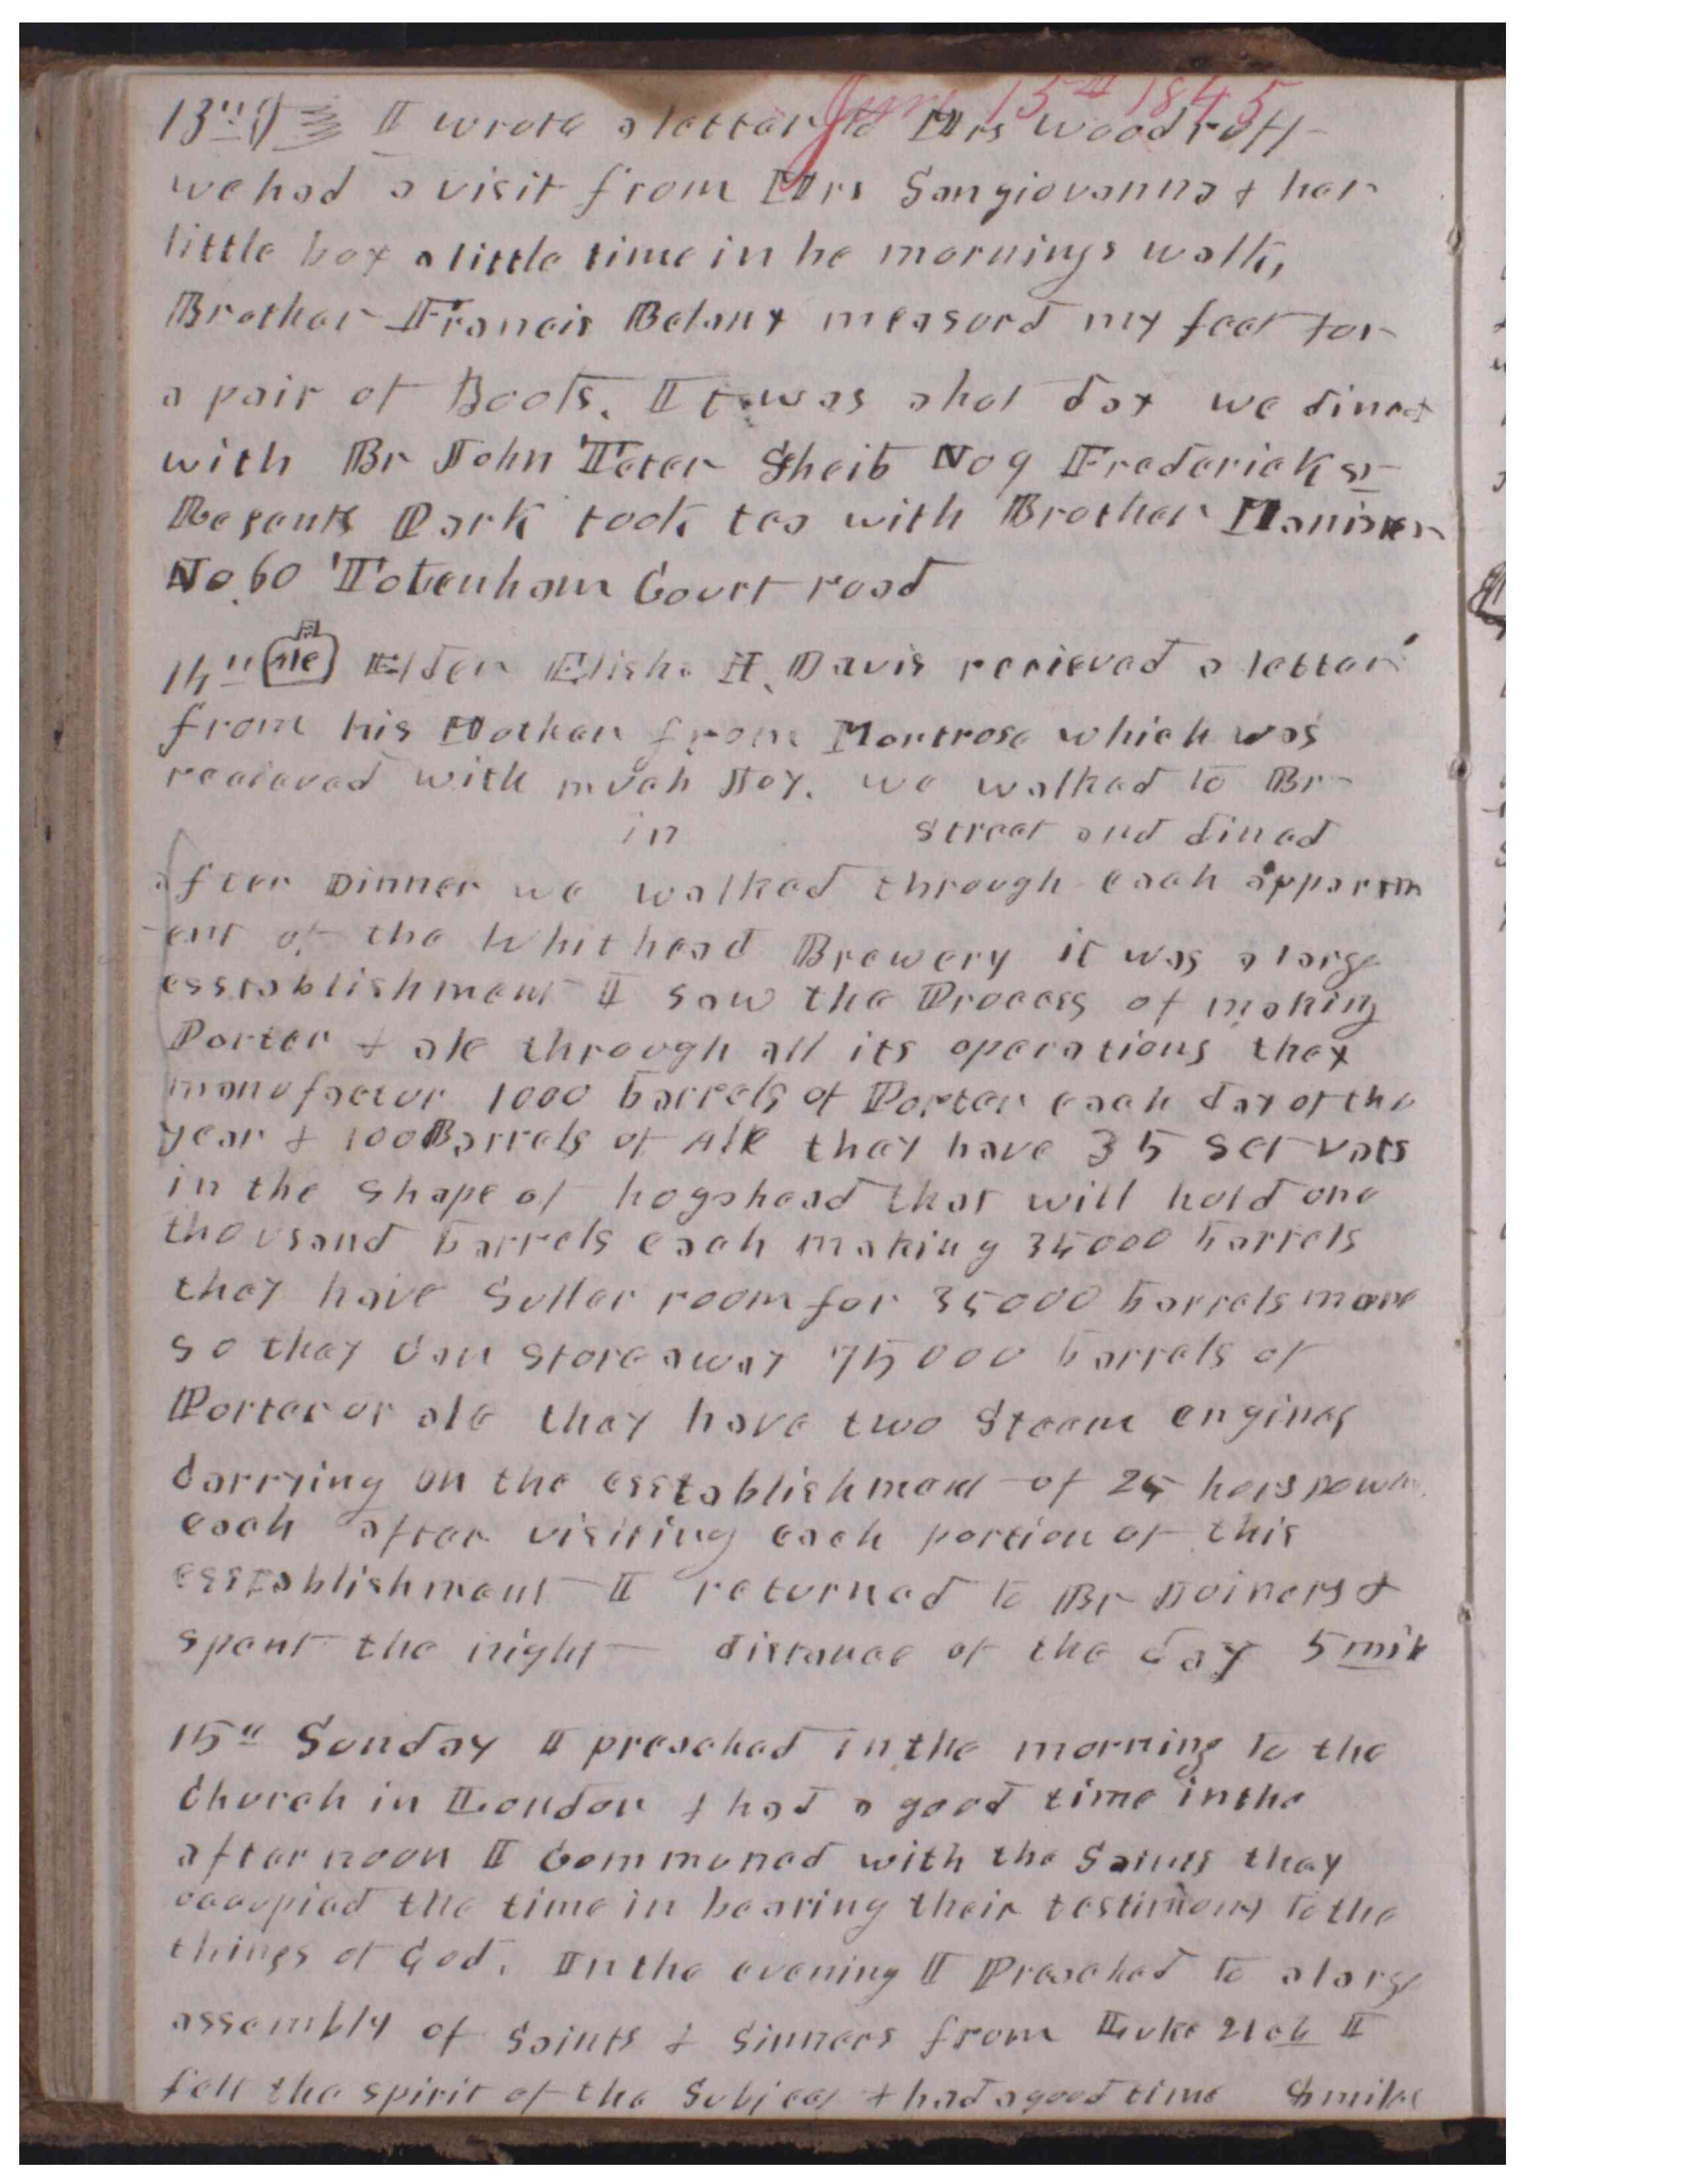 June 15th 1845
13th I wrote a letter to Mrs Woodruff
we had a visit from Mrs Sangiovanna & her
little boy a little time in he mornings walk,
Brother Francis Belany measord my feet for
a pair of Boots. It was a hot day we dined
with Br John Teter Sheib No 9 Frederick st
Regents Park took tea with Brother
No. 60 Totenham Court road
14th Elder Elisha H. Davis recieved a letter
from his Mother from Montrose which was
recieved with much Joy. we walked to Br
in street and dined
after Dinner we walked through each appartm
ent of the Whithead Brewery it was a large
esstablishment I saw the Process of making
Porter & ale through all its operations they
manufactur 1000 barrels of Porter each day of the
year & 100 Barrels of Ale they have 35 set vats
in the shape of hogshead that will hold one
thousand barrels each making 35000 barrels
they have Suller room for 35000 barrels more
so they can store away 75000 barrels of
Porter or ale they have two Steam engines
carrying on the esstablishment of 25 hors power
each after visiting each portion of this
esstablishment I returned to Br Joiners &
spent the night distance of the day 5 mile
15th Sunday I preached in the morning to the
Church in London & had a good time in the
afternoon I Communed with the Saints they
occupied the time in bearing their testimony to the
things of God. In the evening I Preached to a large
assembly of Saints & Sinners from Luke 21 ch I
felt the spirit of the Subject & had a good time miles